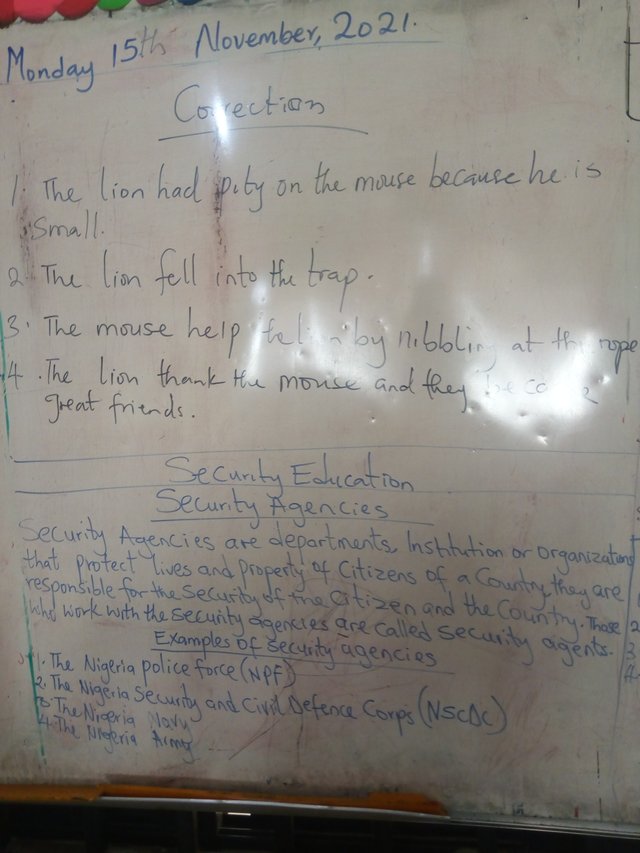 Monday 15th November, 2021.
Correction
1. The lion had pity on the mouse because he is
small.
2. The lion fell into the trap.
3. The mouse help by nibbling at the rope
4. The lion thank the mouse and they become
great friends.
Security Education
Security Agencies
Security Agencies are departments, Institution or organizations
that protect lives and property of Citizens of a Country, they are
responsible for the security of the Citizen and the Country. Those
who work with the security agencies are called security agents.
Examples of security agencies
1. The Nigeria police force (NPF)
2. The Nigeria Security and Civil Defence Corps (NSCDC)
3. The Nigeria Navy
4. The Nigeria Army
1
2
3
4.